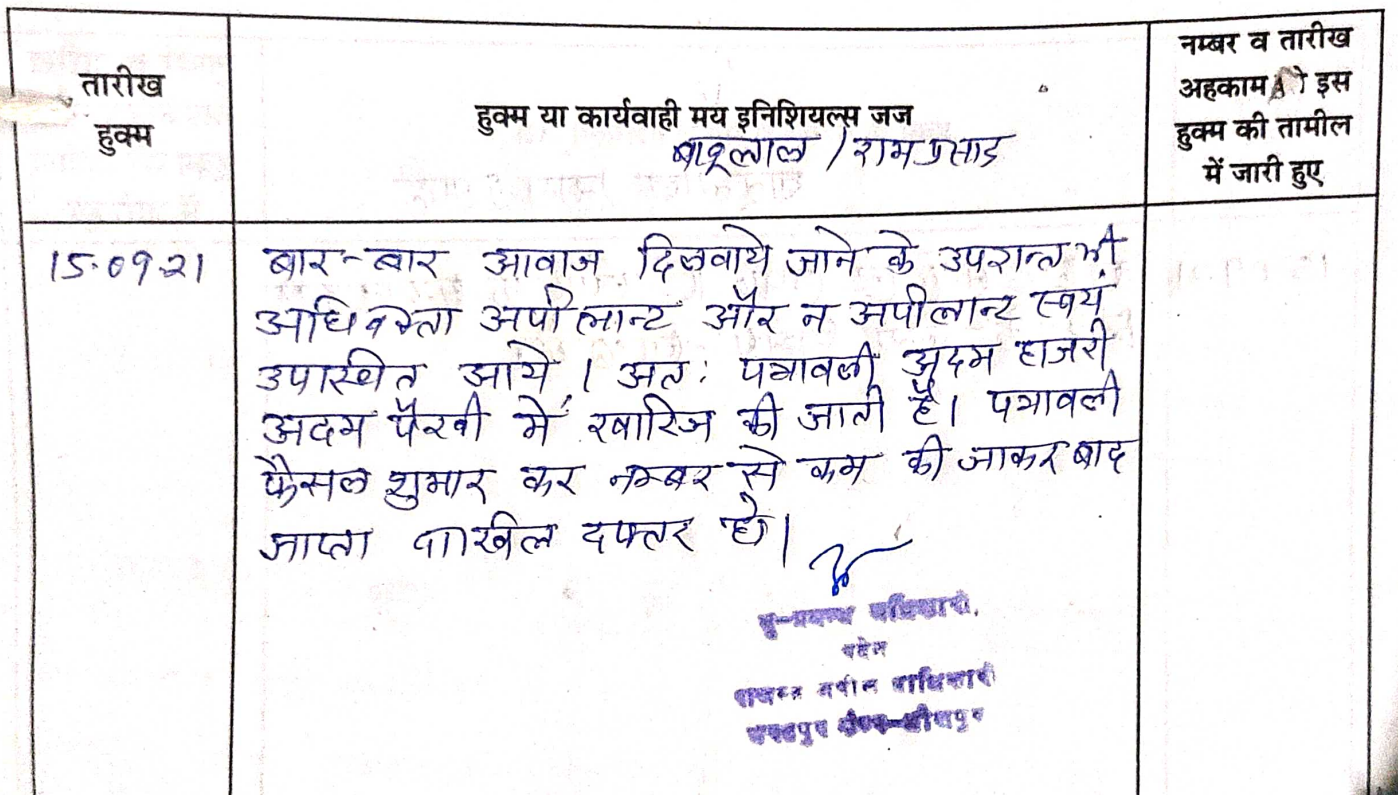 तारीख
हुक्म
हुक्म या कार्यवाही मय इनिशियल्स जज
बाबूलाल / रामप्रसाद
नम्बर व तारीख
अहकाम इस
हुक्म की तामील
में जारी हुए
15.09.21
बार-बार आवाज दिलवाये जाने के उपरान्त भी
अधिवक्ता अपीलान्ट और न अपीलान्ट स्वयं
उपास्थित आये। अतः पत्रावली अदम हाजरी
अदम पैरवी में खारिज की जाती है। पत्रावली
फैसल शुमार कर नम्बर से कम की जाकर बाद
जाप्ता दाखिल दफ्तर हो।
भू-प्रबन्ध अधिकारी,
पदेन
राजस्व अपील अधिकारी